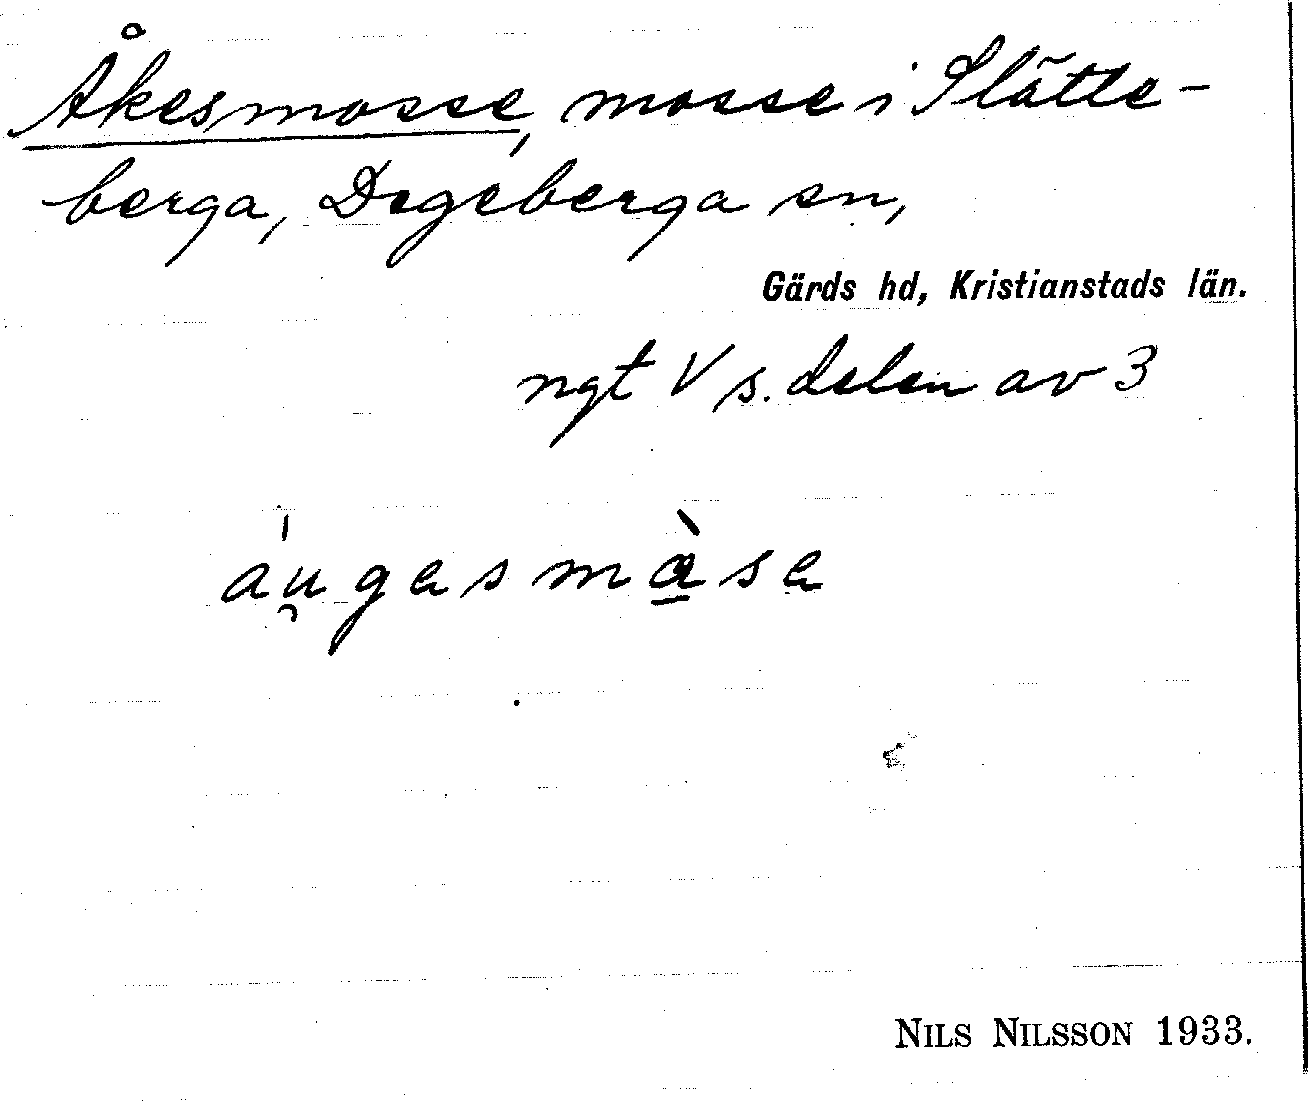 Åkesmosse, mosse i Slätte-
berga, Degeberga sn,
Gärds hd, Kristianstads län.
ngt V s. delen av 3
áu̯gasmàse
NILS NILSSON 1933.